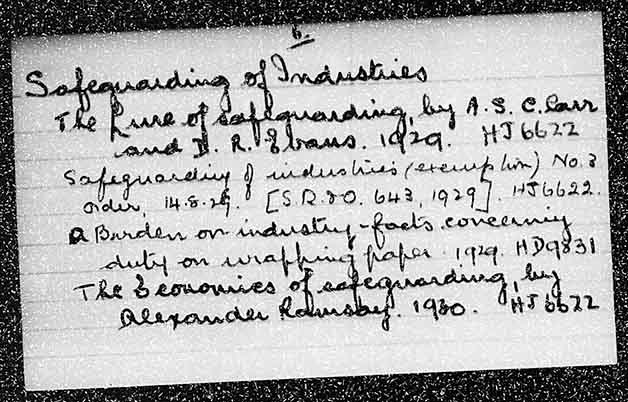 6.
Safeguarding of Industries
The Lure of safeguarding, by A. S. C. Carr
and D. R. Evans. 1929. HJ6622
Safeguarding of industries (exemption) No. 3
order, 14.8.29. [S.R.&O. 643, 1929]. HJ6622.
A Burden on industry - facts concerning
duty on wrapping paper. 1929. HD9831
The Economics of safeguarding, by
Alexander Ramsay. 1930. HJ6622